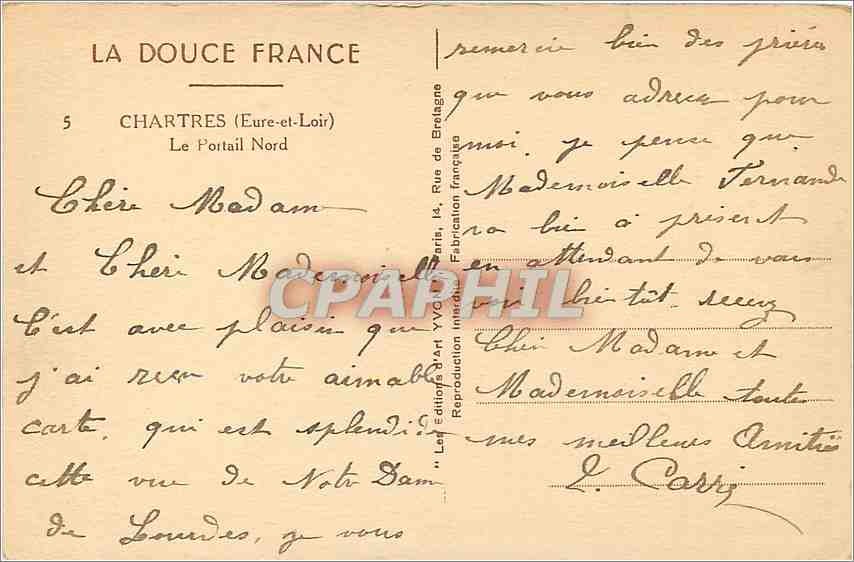 LA DOUCE FRANCE
5 CHARTRES (Eure-et-Loir)
Le Portail Nord
Chère Madame
et Chère Mademoiselle
C'est avec plaisir que
j'ai reçu votre aimable
carte, qui est splendide
cette vue de Notre Dame
de Lourdes, je vous
"Les Editions d'Art YVON" Paris, 14, Rue de Bretagne
Reproduction Interdite Fabrication française
remercie bien des prières
que vous adrecez pour
moi, je pense que
Mademoiselle Fernande
va bien à présent
en attendant de vous
voir bientôt. recevez
Chère Madame et
Mademoiselle toutes
mes meilleures Amitiés
CPAPHIL